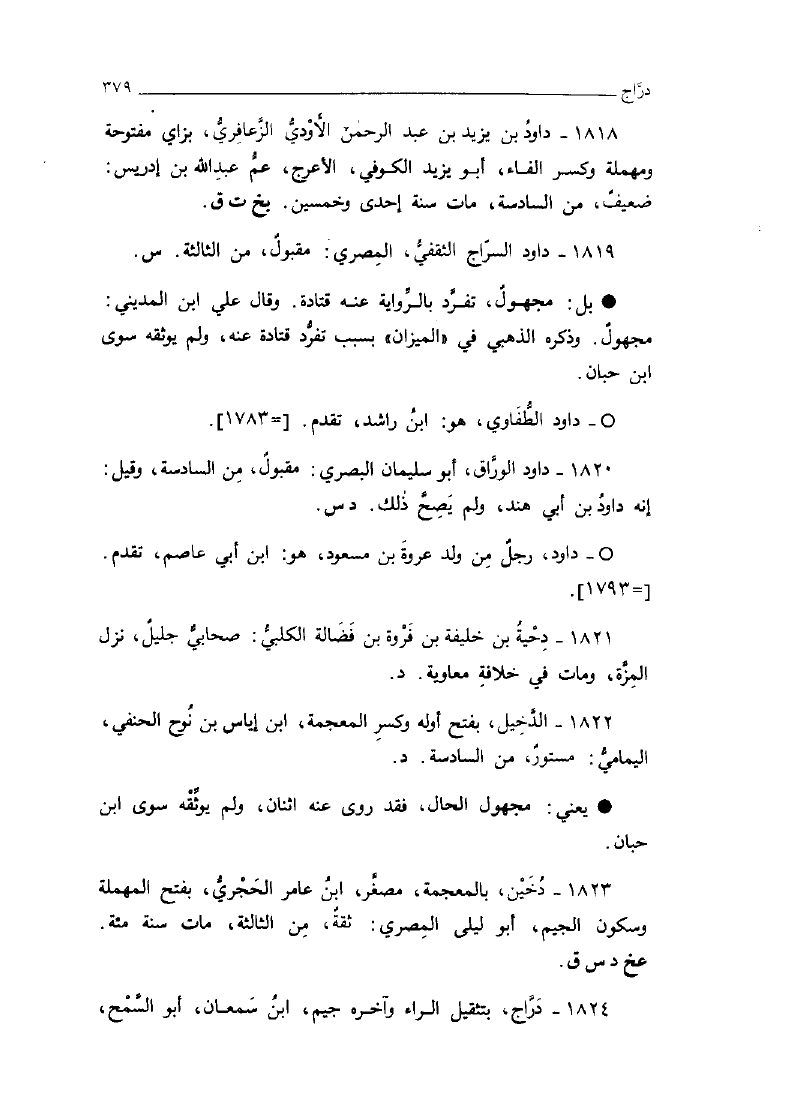 درَّاج ٣٧٩
١٨١٨ - داودُ بن يزيد بن عبد الرحمٰن الأَوْديُّ الزَّعافِريُّ، بزاي مفتوحة
ومهملة وكسر الفاء، أبو يزيد الكوفي، الأعرج، عمُّ عبدالله بن إدريس:
ضعيفٌ، من السادسة، مات سنة إحدى وخمسين. بخ ت ق.
١٨١٩ - داود السرَّاج الثقفيُّ، المِصري: مقبولٌ، من الثالثة. س.
● بل: مجهولٌ، تفرَّد بالرِّواية عنه قتادة. وقال علي ابن المديني:
مجهولٌ. وذكره الذهبي في «الميزان» بسبب تفرُّد قتادة عنه، ولم يوثقه سوى
ابن حبان.
○ - داود الطُّفَاوي، هو: ابنُ راشد، تقدم. [=١٧٨٣].
١٨٢٠ - داود الورَّاق، أبو سليمان البصري: مقبولٌ، مِن السادسة، وقيل:
إنه داودُ بن أبي هند، ولم يَصِحَّ ذٰلك. د س.
○ - داود، رجلٌ مِن ولد عروةَ بن مسعود، هو: ابن أبي عاصم، تقدم.
[=١٧٩٣].
١٨٢١ - دِحْيةُ بن خليفة بن فَرْوة بن فَضَالة الكلبيُّ: صحابيٌّ جليلٌ، نزل
المِزَّة، ومات في خلافةِ معاوية. د.
١٨٢٢ - الدَّخِيل، بفتح أوله وكسرِ المعجمة، ابن إياس بن نُوح الحنفي،
اليماميُّ: مستورٌ، من السادسة. د.
● يعني: مجهول الحال، فقد روى عنه اثنان، ولم يوثِّقْه سوى ابن
حبان.
١٨٢٣ - دُخَيْن، بالمعجمة، مصغَّر، ابنُ عامر الحَجْريُّ، بفتح المهملة
وسكون الجيم، أبو ليلى المِصري: ثقةٌ، مِن الثالثة، مات سنة مئة.
عخ د س ق.
١٨٢٤ - دَرَّاج، بتثقيل الراء وآخره جيم، ابنُ سَمعان، أبو السَّمْح،